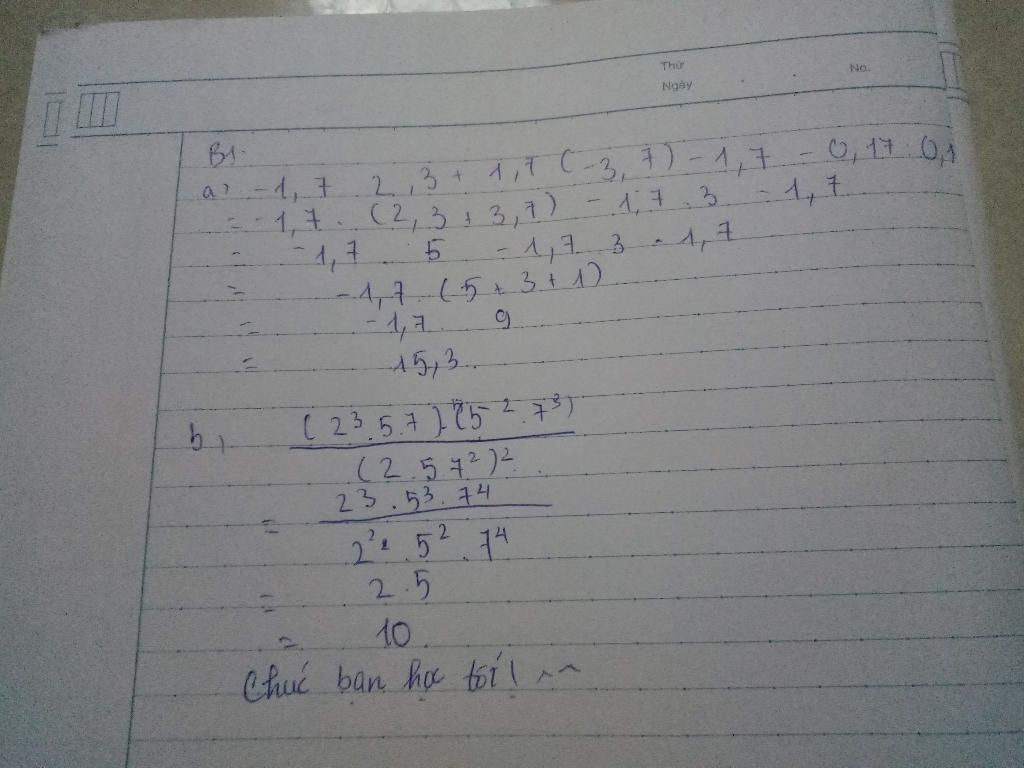 Thứ
Ngày
No.
B1.
a, -1,7 2,3 + 1,7 (-3,7) - 1,7 - 0,17 0,1
= -1,7 . (2,3 + 3,7) - 1,7 . 3 - 1,7
= -1,7 5 - 1,7 3 - 1,7
= -1,7 (5 + 3 + 1)
= -1,7 9
= 15,3.
b, (2³.5.7).(5².7³)
(2.5 7²)²
= 2³.5³.7⁴
2².5².7⁴
= 2.5
= 10
Chúc bạn học tốt! ^^